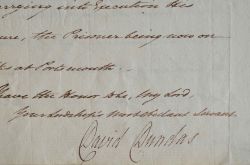 carrying into Execution the
the Prisoner being now on
at Portsmouth.
have the Honor to be, My Lord,
Your Lordship's most obedient Servant
David Dundas